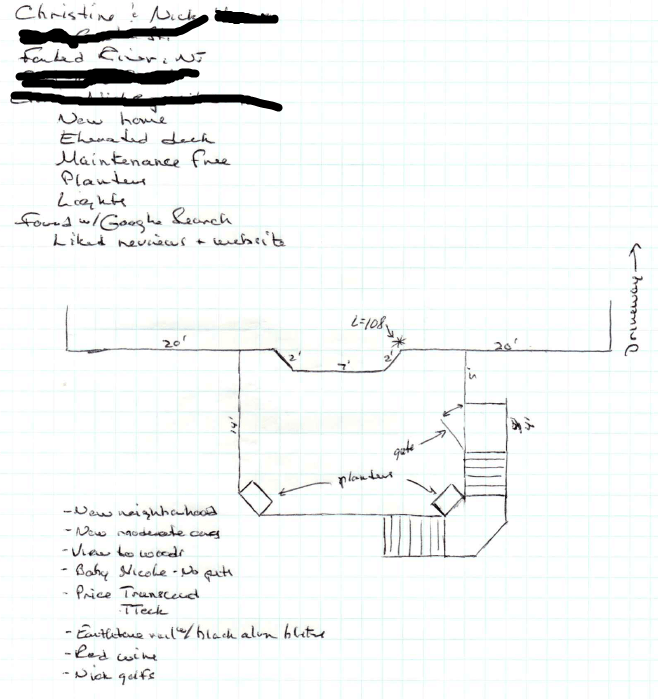 Christine & Nick
Forked River, NJ
New home
Elevated deck
Maintenance free
Planters
Lights
Found w/Google Search
Liked reviews + website
Driveway
L=108
20'
2'
7'
2'
20'
5'
14'
gate
planters
- New neighborhood
- New moderate
- View to woods
- Baby Nicole - No pets
- Price Transcend
TTech
- Earthtone rail w/ black alum
- Red wine
- Nick golfs